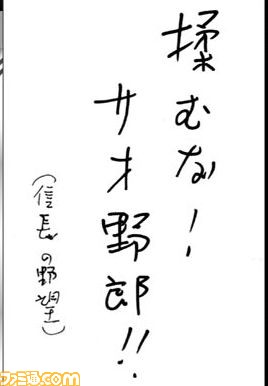 揉むな!
サオ野郎!!
(信長の野望)
ファミ通.com